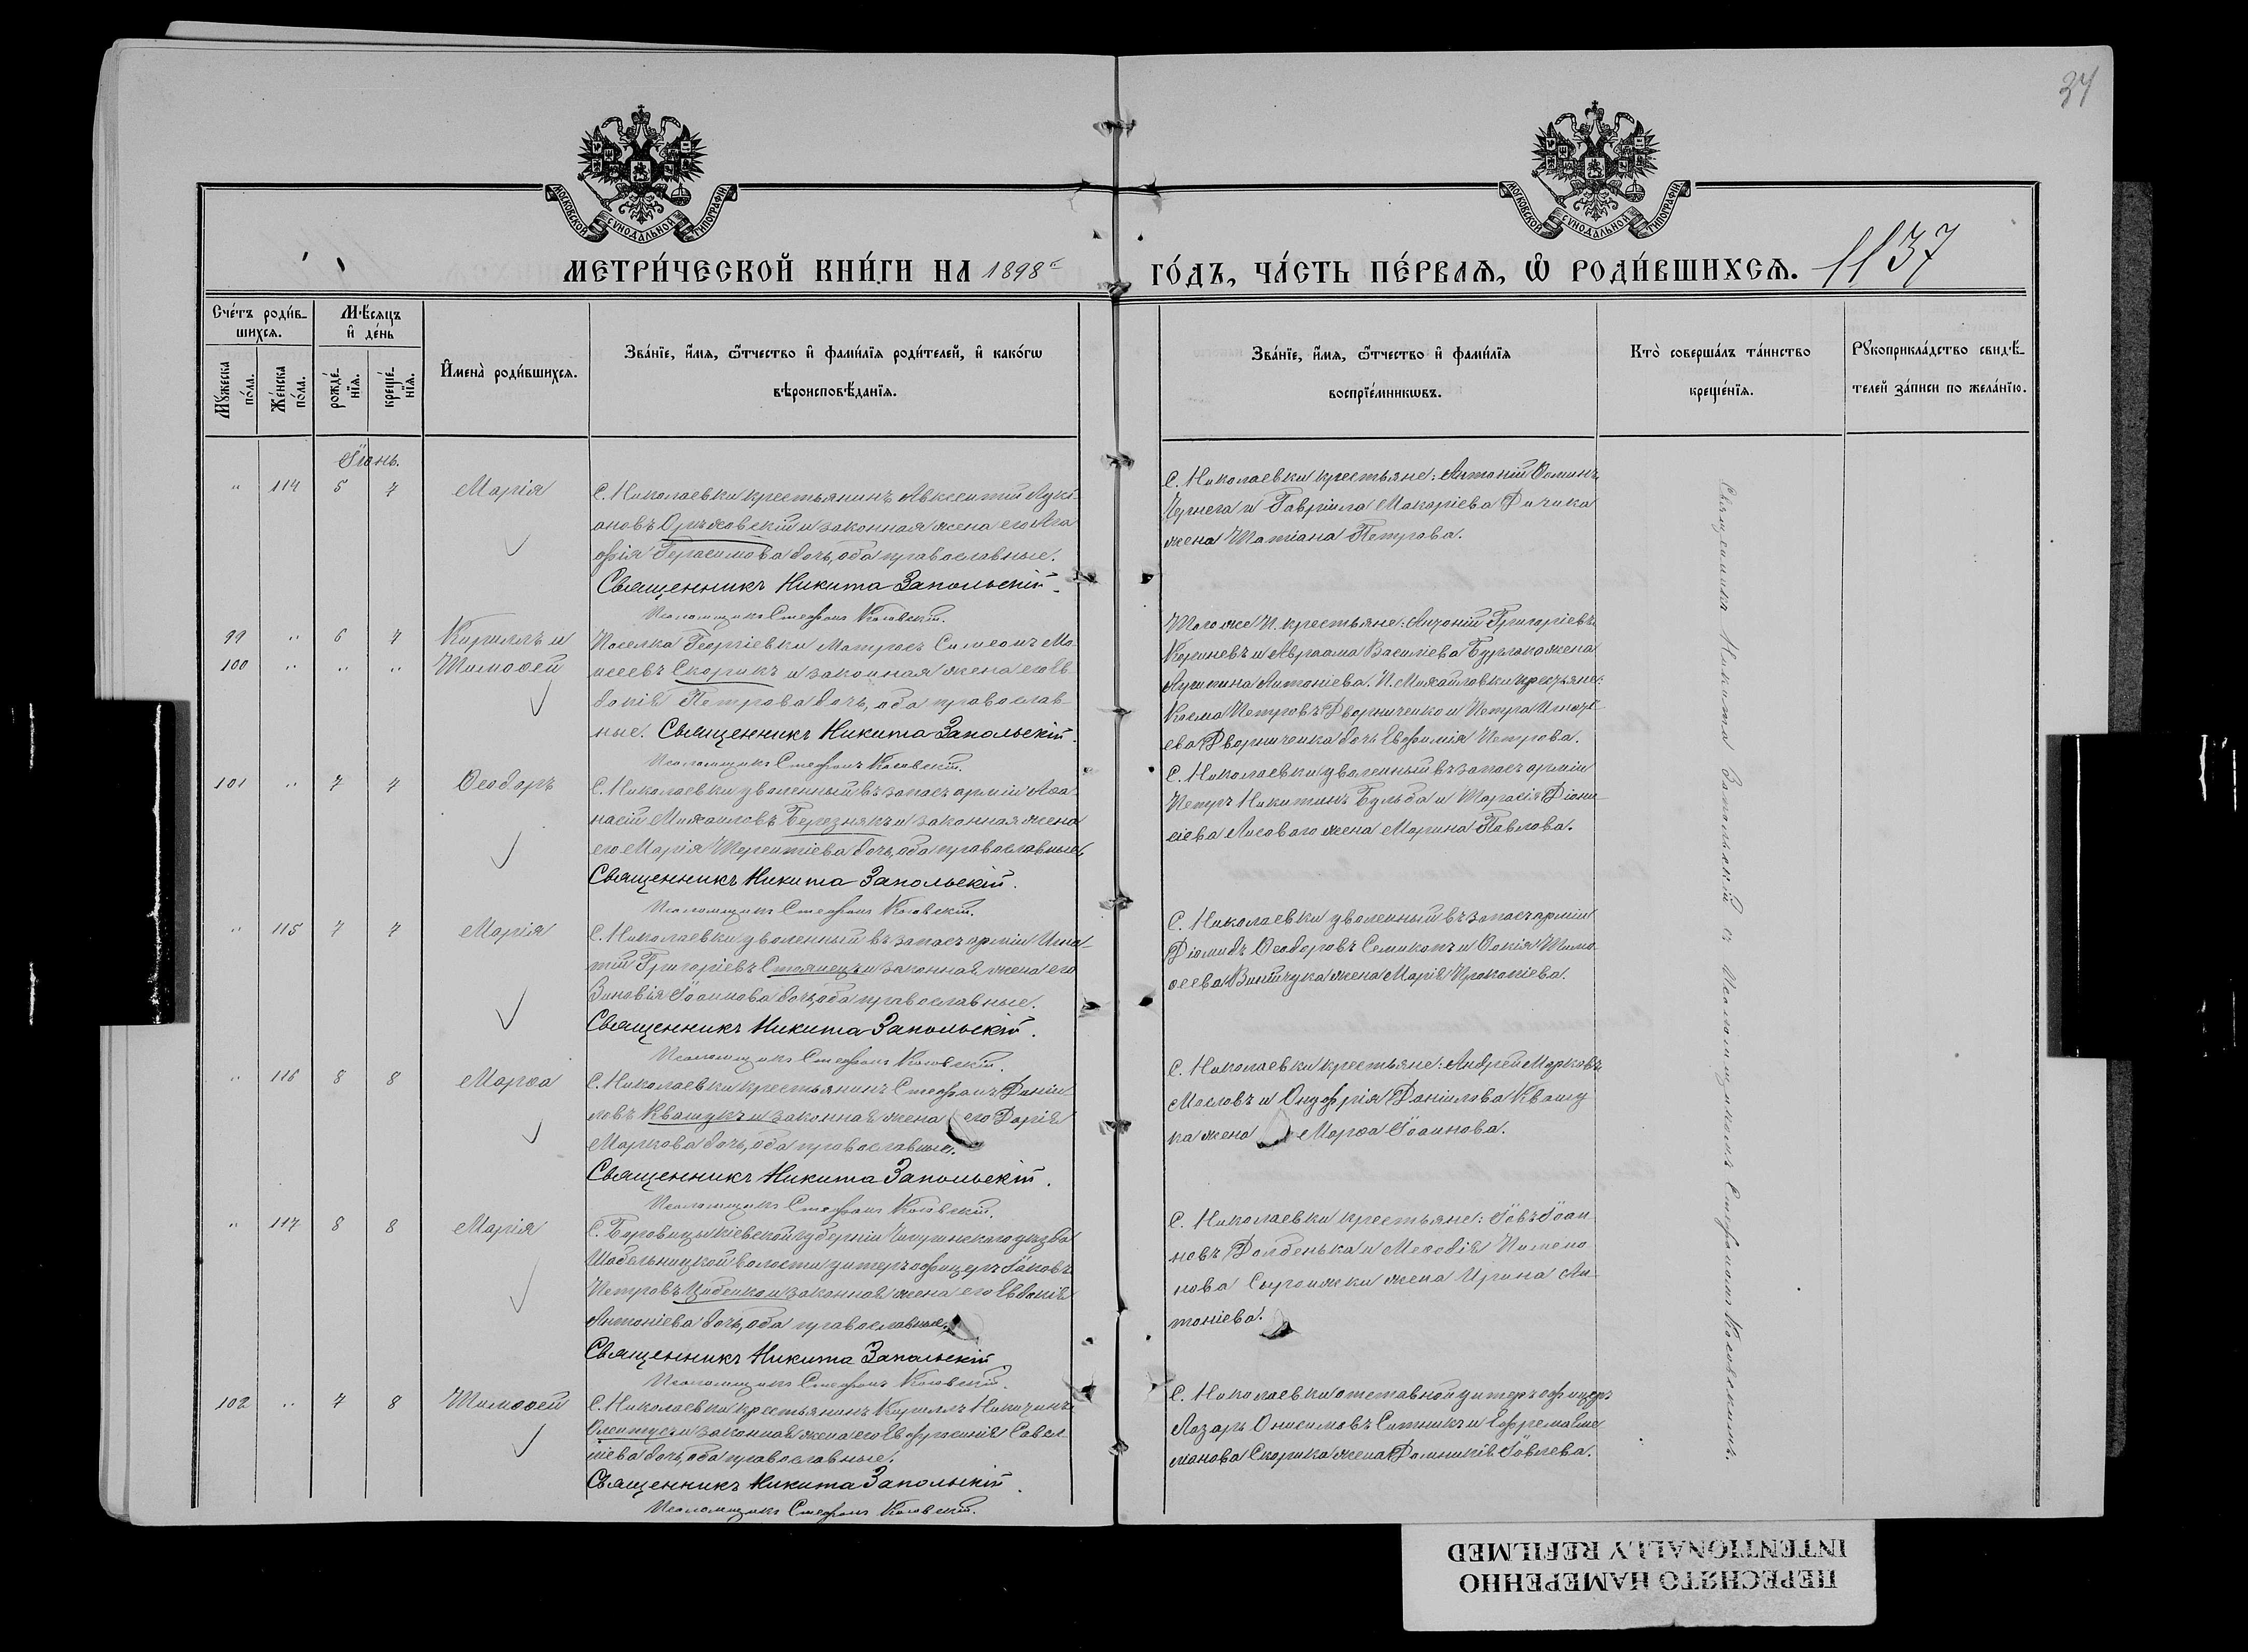 34
МОСКОВСКОЙ СѴНОДАЛЬНОЙ ТИПОГРАФІИ
МОСКОВСКОЙ СѴНОДАЛЬНОЙ ТИПОГРАФІИ
МЕТРИ́ЧЕСКОЙ КНИ́ГИ НА 1898 ГО́ДЪ, ЧА́СТЬ ПЕ́РВАѦ, Ѡ҆ РОДИ́ВШИХСѦ. 1137
Сче́тъ роди́в-
шихсѧ.
Мꙋ́жеска
по́ла.
Же́нска
по́ла.
Мѣ́сѧцъ
и҆ де́нь
рожде́-
нїѧ.
креще́-
нїѧ.
И҆мена̀ роди́вшихсѧ.
Зва́нїе, и҆́мѧ, ѻ҆́тчество и҆ фами́лїѧ роди́телей, и҆ како́гѡ
вѣроисповѣ́данїѧ.
Зва́нїе, и҆́мѧ, ѻ҆́тчество и҆ фами́лїѧ
воспрїе́мникѡвъ.
Кто̀ соверша́лъ та́инство
креще́нїѧ.
Рꙋкоприкла́дство свидѣ́-
телей за́писи по жела́нїю.
Іюнь.
" 114 5 7 Марія
С. Николаевки крестьянинъ Авксентій Луки-
ановъ Оржховскій и законная жена его Ага-
фія Герасимова дочь, оба православные.
Священникъ Никита Запольскій.
Псаломщикъ Стефанъ Косовскій.
С. Николаевки крестьяне: Антоній Ѳоминъ
Чернега и Гавріила Макаріева Дичика
жена Татіана Петрова.
99 " 6 7 Кириллъ и
100 " " " Тимоѳей
Поселка Георгіевки Матросъ Симеонъ Мо-
исеевъ Скорикъ и законная жена его Ев-
докія Петрова дочь, оба православ-
ные. Священникъ Никита Запольскій.
Псаломщикъ Стефанъ Косовскій.
Того же П. крестьяне: Антоній Григоріевъ
Кориневъ и Авраама Василіева Бурлака жена
Агрипина Антоніева. П. Михайловки крестьяне:
Косма Петровъ Дворниченко и Петра Игнаті-
ева Дворниченка дочь Евфимія Петрова.
101 " 7 7 Ѳеодоръ
С. Николаевки уволенный въ запасъ арміи Аѳа-
насій Михаиловъ Березнякъ и законная жена
его Марія Терентіева дочь, оба православные.
Священникъ Никита Запольскій.
Псаломщикъ Стефанъ Косовскій.
С. Николаевки уволенный въ запасъ арміи
Петръ Никитинъ Бульба и Тарасія Діони-
сіева Лисоваго жена Марина Павлова.
" 115 7 7 Марія
С. Николаевки уволенный въ запасъ арміи Игна-
тій Григоріевъ Стоянецъ и законная жена его
Зиновія Іоаннова дочь, оба православные.
Священникъ Никита Запольскій.
Псаломщикъ Стефанъ Косовскій.
С. Николаевки уволенный въ запасъ арміи
Діомидъ Ѳеодоровъ Семикопъ и Ѳокія Тимо-
ѳеева Винтчука жена Марія Прокопіева.
" 116 8 8 Марѳа
С. Николаевки крестьянинъ Стефанъ Даніи-
ловъ Квашукъ и законная жена его Дарія
Маркова дочь, оба православные.
Священникъ Никита Запольскій.
Псаломщикъ Стефанъ Косовскій.
С. Николаевки крестьяне: Андрей Марковъ
Масловъ и Онуфрія Даніилова Квашу-
ка жена Марѳа Іоаннова.
" 117 8 8 Марія
С. Боровицы Кіевской губерніи Чигиринскаго уѣзда
Шабельницкой волости унтеръ офицеръ Іаковъ
Петровъ Цибенко и законная жена его Евдокія
Антоніева дочь, оба православные.
Священникъ Никита Запольскій
Псаломщикъ Стефанъ Косовскій.
С. Николаевки крестьяне: Іовъ Іоан-
новъ Долбенька и Меѳодія Пимено-
нова Сыромжки жена Ирина Ан-
тоніева.
102 " 7 8 Тимоѳей
С. Николаевки крестьянинъ Кириллъ Никитинъ
и законная жена его Евфросинія Савел-
іева дочь, оба православные.
Священникъ Никита Запольскій.
Псаломщикъ Стефанъ Косовскій.
С. Николаевки отставной унтеръ офицеръ
Лазарь Онисимовъ Ситникъ и Ефрема Ем-
манова Скорика жена Домникія Іовлева.
Священникъ Никита Запольскій съ Псаломщикомъ Стефаномъ Косовскимъ.
ПЕРЕСНЯТО НАМЕРЕННО
INTENTIONALLY REFILMED